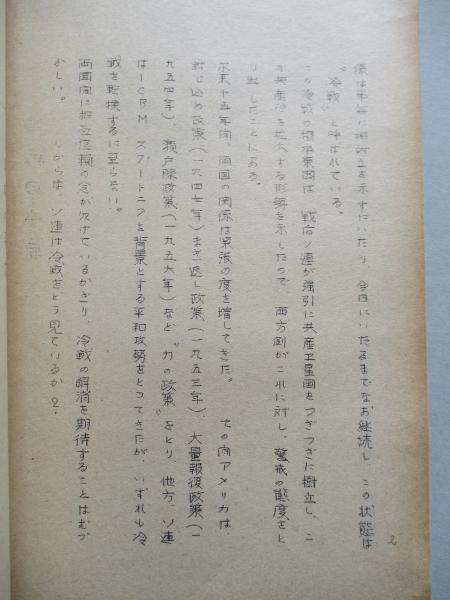 係は業々しい対立を示すにいたり、今日にいたるまでなお継続し、この状態は
“冷戦”と呼ばれている。
この冷戦の根本原因は、戦后ソ連が強引に共産卫星圏をつぎつぎに樹立し、こ
の共産圏を拡大する形勢を示したので、西方側がこれに対し、警戒の態度をと
り出したことによる。
尓来十五年间、両国の関係は緊張の度を増してきた。 その间アメリカは
封じ込め政策(一九四七年)、まき返し政策(一九五三年)、大量報復政策(一
九五四年)、瀬戸際政策(一九五六年)など“力の政策”をとり、他方、ソ連
はICBM、スプートニクを背景とする平和攻勢をとつてきたが、いずれも冷
戦を転換するに至らない。
両国间に相互信頼の念が欠けているかぎり、冷戦の解消を期待することはむづ
かしい。 しからば、ソ連は冷戦をどう見ているか?
2